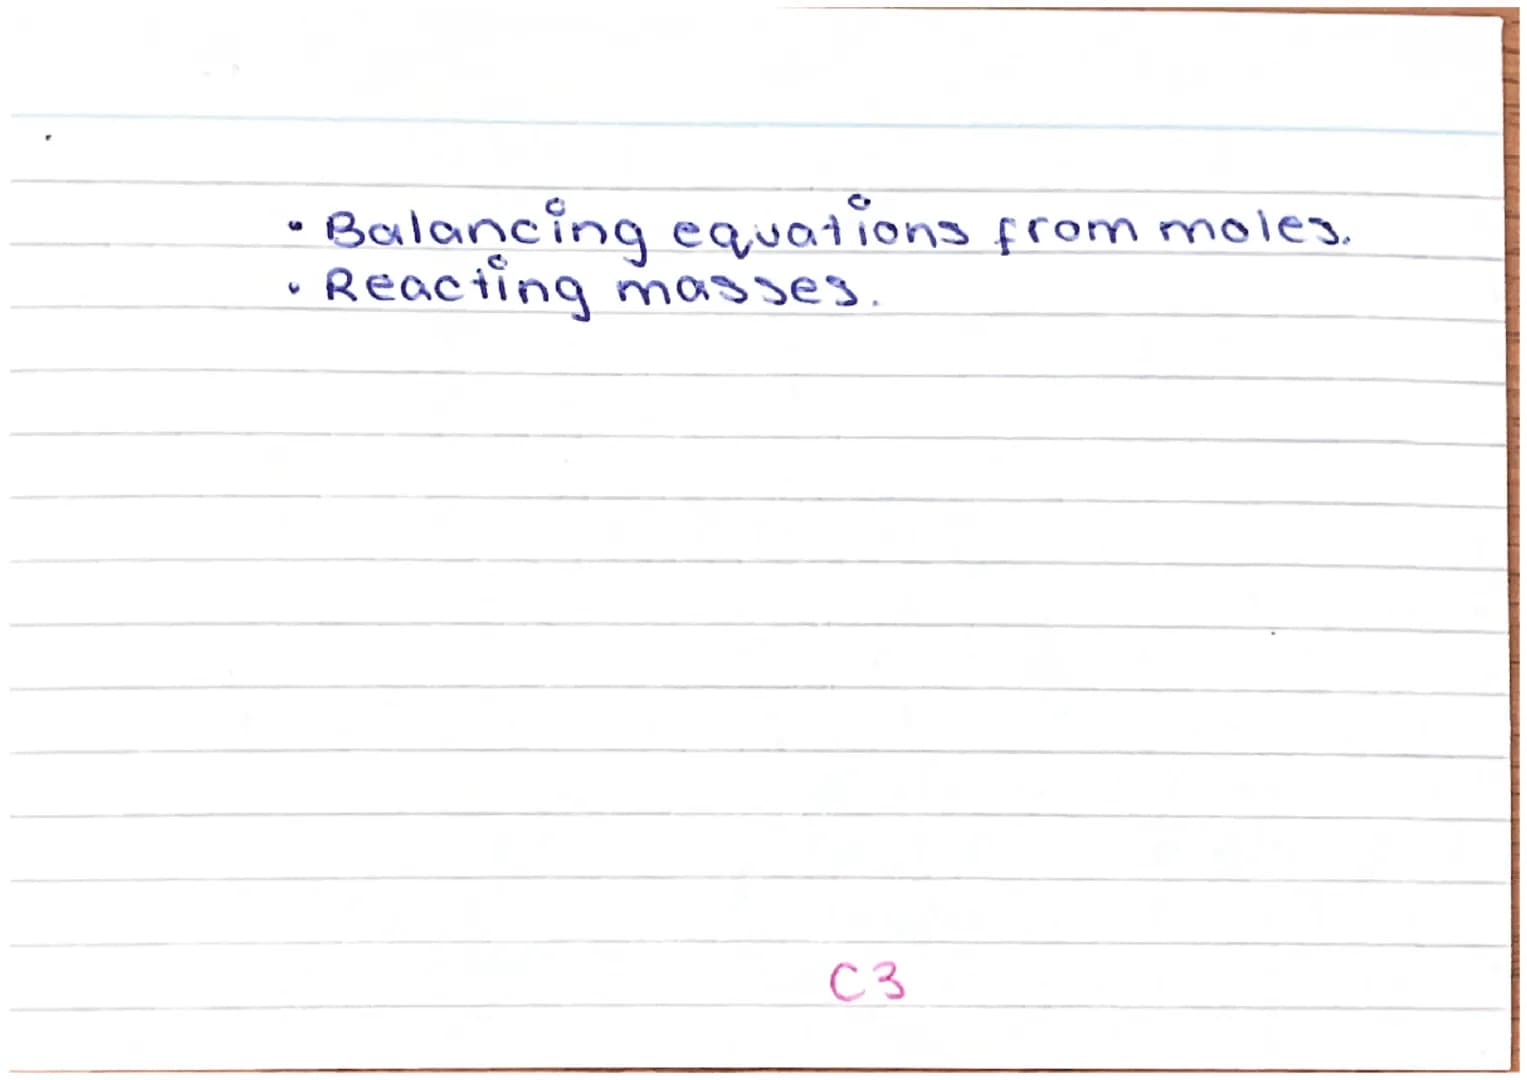 • Balancing equations from moles.
• Reacting masses.
C3